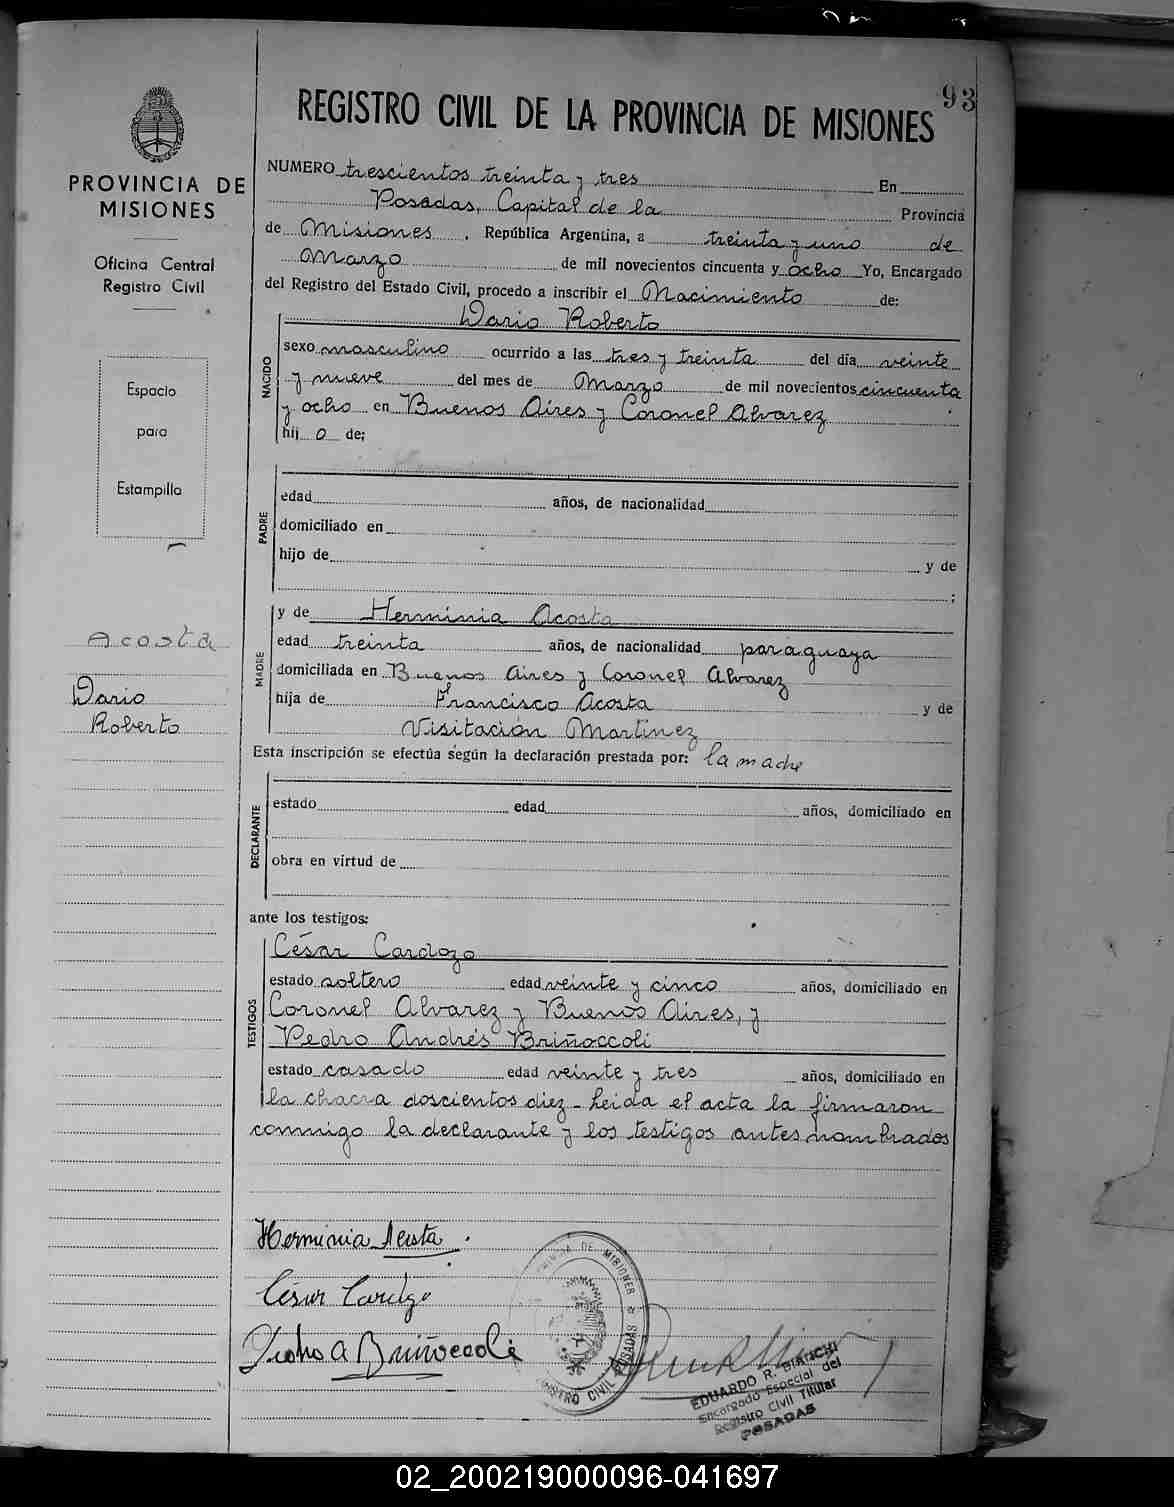 93
REGISTRO CIVIL DE LA PROVINCIA DE MISIONES
PROVINCIA DE
MISIONES
Oficina Central
Registro Civil
Espacio
para
Estampilla
Acosta
Dario
Roberto
NUMERO trescientos treinta y tres En
Posadas, Capital de la Provincia
de Misiones, República Argentina, a treinta y uno de
Marzo de mil novecientos cincuenta y ocho Yo, Encargado
del Registro del Estado Civil, procedo a inscribir el Nacimiento de:
NACIDO
Dario Roberto
sexo masculino ocurrido a las tres y treinta del día veinte
y nueve del mes de Marzo de mil novecientos cincuenta
y ocho en Buenos Aires y Coronel Alvarez
hij o de:
PADRE
edad años, de nacionalidad
domiciliado en
hijo de y de
;
MADRE
y de Herminia Acosta
edad treinta años, de nacionalidad paraguaya
domiciliada en Buenos Aires y Coronel Alvarez
hija de Francisco Acosta y de
Visitación Martinez
Esta inscripción se efectúa según la declaración prestada por: la madre
DECLARANTE
estado edad años, domiciliado en
obra en virtud de
ante los testigos:
TESTIGOS
César Cardozo
estado soltero edad veinte y cinco años, domiciliado en
Coronel Alvarez y Buenos Aires, y
Pedro Andrés Briñoccoli
estado casado edad veinte y tres años, domiciliado en
la chacra doscientos diez - Leida el acta la firmaron
conmigo la declarante y los testigos antes nombrados
Herminia Acosta.
César Cardozo
Pedro A Briñoccoli
PROVINCIA DE MISIONES
REGISTRO CIVIL POSADAS
EDUARDO R. BIANCHI
Encargado Especial del
Registro Civil Titular
POSADAS
02_200219000096-041697